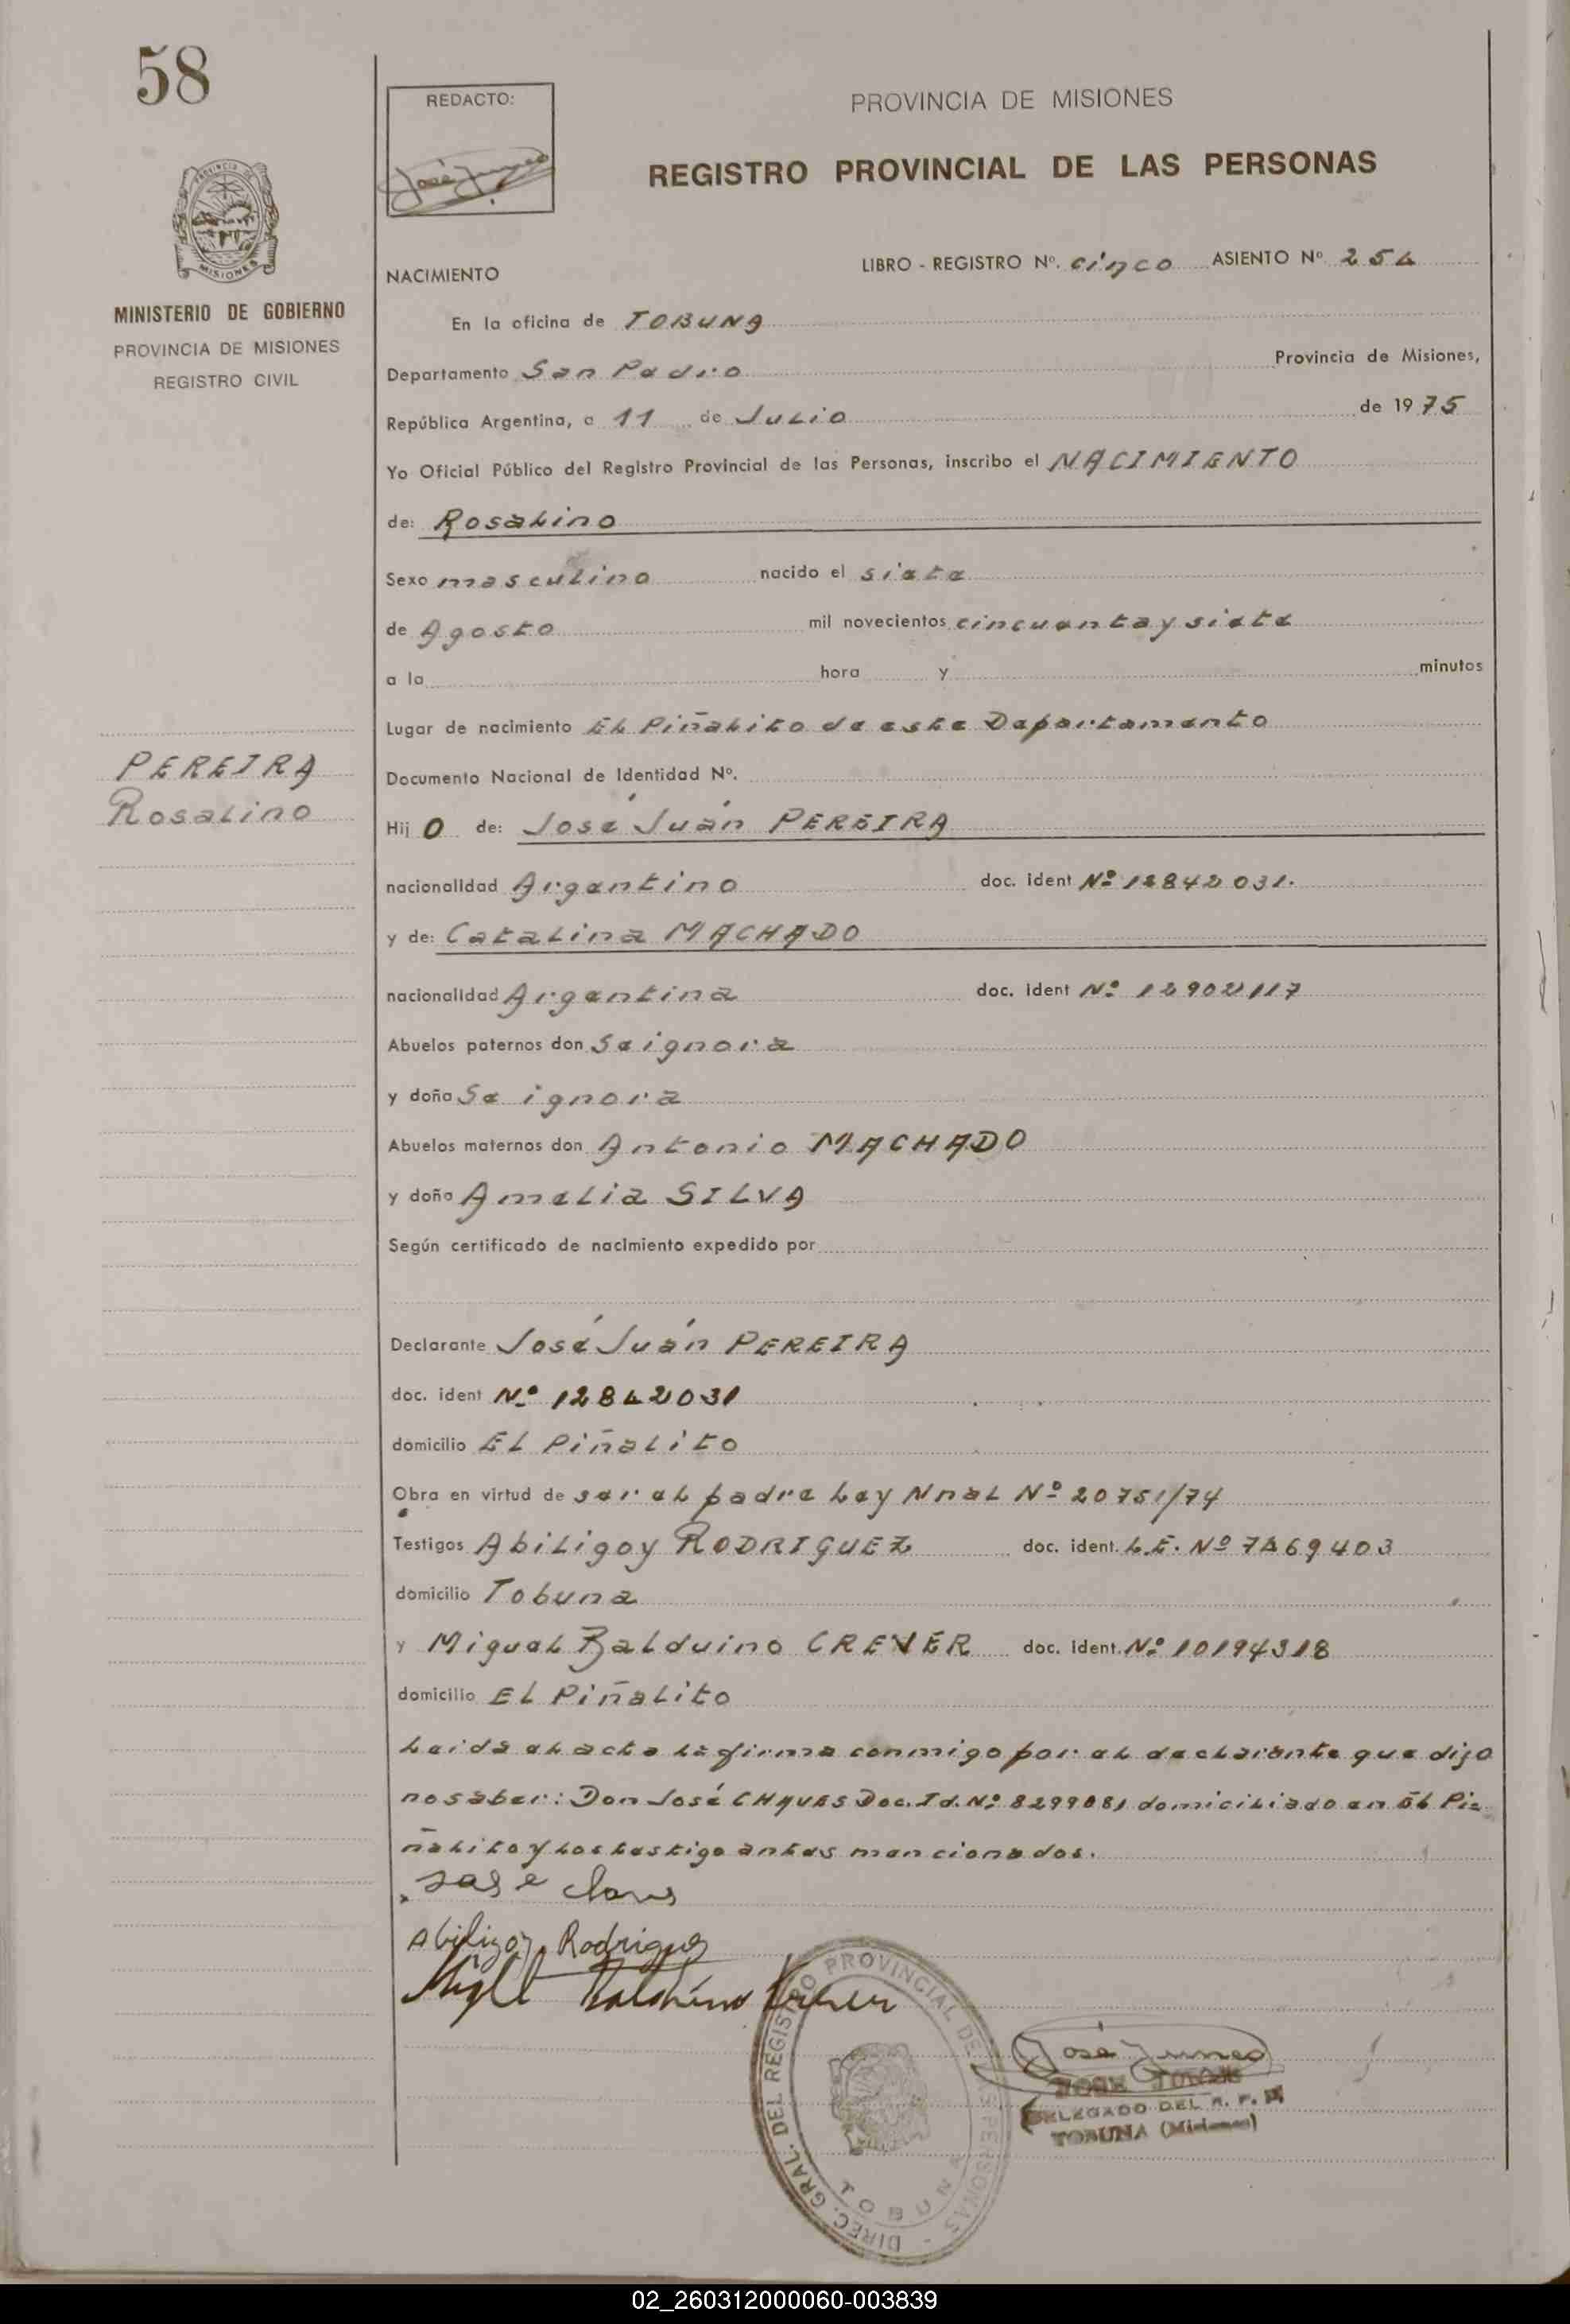 58
REDACTO:
PROVINCIA DE MISIONES
REGISTRO PROVINCIAL DE LAS PERSONAS
MISIONES
MINISTERIO DE GOBIERNO
PROVINCIA DE MISIONES
REGISTRO CIVIL
NACIMIENTO
LIBRO - REGISTRO Nº. cinco ASIENTO Nº 254
En la oficina de TOBUNA
Departamento San Pedro Provincia de Misiones,
República Argentina, a 11 de Julio de 1975
Yo Oficial Público del Registro Provincial de las Personas, inscribo el NACIMIENTO
de: Rosalino
Sexo masculino nacido el siete
de Agosto mil novecientos cincuenta y siete
a la hora y minutos
Lugar de nacimiento El Piñalito de este Departamento
PEREIRA
Rosalino
Documento Nacional de Identidad Nº.
Hij o de: José Juán PEREIRA
nacionalidad Argentino doc. ident Nº 12842031.
y de: Catalina MACHADO
nacionalidad Argentina doc. ident Nº 12902117
Abuelos paternos don Se ignora
y doña Se ignora
Abuelos maternos don Antonio MACHADO
y doña Amelia SILVA
Según certificado de nacimiento expedido por
Declarante José Juán PEREIRA
doc. ident Nº 12842031
domicilio El Piñalito
Obra en virtud de ser el padre Ley Nnal Nº 20751/74
Testigos Abiligoy RODRIGUEZ doc. ident. L.E. Nº 7469403
domicilio Tobuna
y Miguel Balduino CREVER doc. ident. Nº 10194318
domicilio El Piñalito
Leida el acta la firma conmigo por el declarante que dijo
no saber: Don José CHAVES Doc. Id. Nº 8299081 domiciliado en El Pi=
ñalito y los testigo antes mencionados.
Abiligoy Rodriguez
DIREC. GRAL. DEL REGISTRO PROVINCIAL DE LAS PERSONAS
TOBUNA
DELEGADO DEL R. P. P.
TOBUNA (Misiones)
02_260312000060-003839